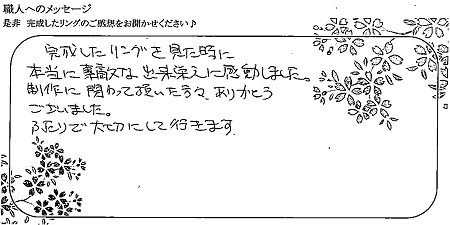 職人へのメッセージ
是非 完成したリングのご感想をお聞かせください♪
完成したリングを見た時に
本当に素敵な出来栄えに感動しました。
制作に関わって頂いた方々、ありがとう
ございました。
ふたりで大切にして行きます。